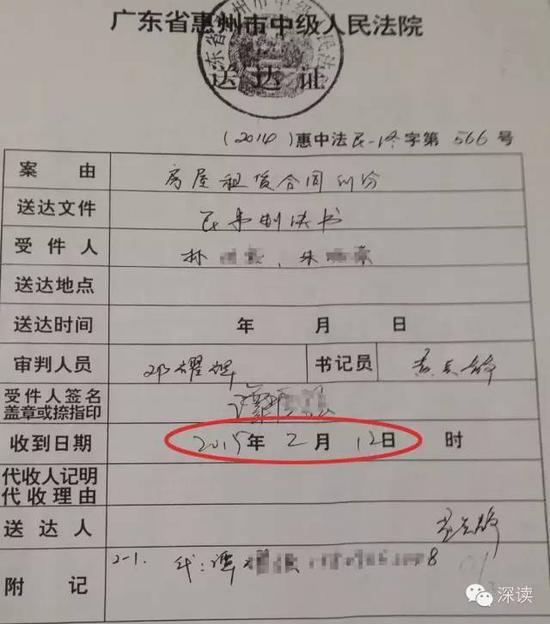 广东省惠州市中级人民法院
送达证
(2014)惠中法民一终字第 566 号
案由 房屋租赁合同纠纷
送达文件 民事判决书
受件人 林 朱
送达地点
送达时间 年 月 日
审判人员 邓耀辉 书记员
受件人签名
盖章或捺指印 谭
收到日期 2015年 2月 12日 时
代收人记明
代收理由
送达人
附记 2-1. 代:谭 8
深读